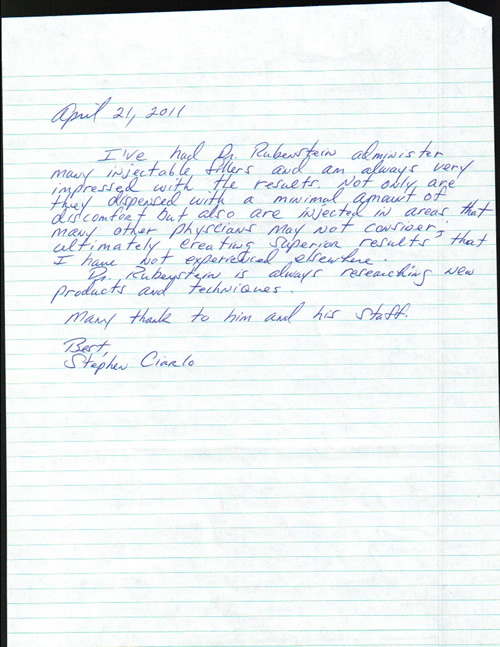 April 21, 2011
I've had Dr. Rubenstein administer
many injectable fillers and am always very
impressed with the results. Not only are
they dispensed with a minimal amount of
discomfort but also are injected in areas that
many other physcians may not consider,
ultimately creating superior results that
I have not experienced elsewhere.
Dr. Rubenstein is always researching new
products and techniques.
Many thank to him and his staff.
Best,
Stephen Ciarlo